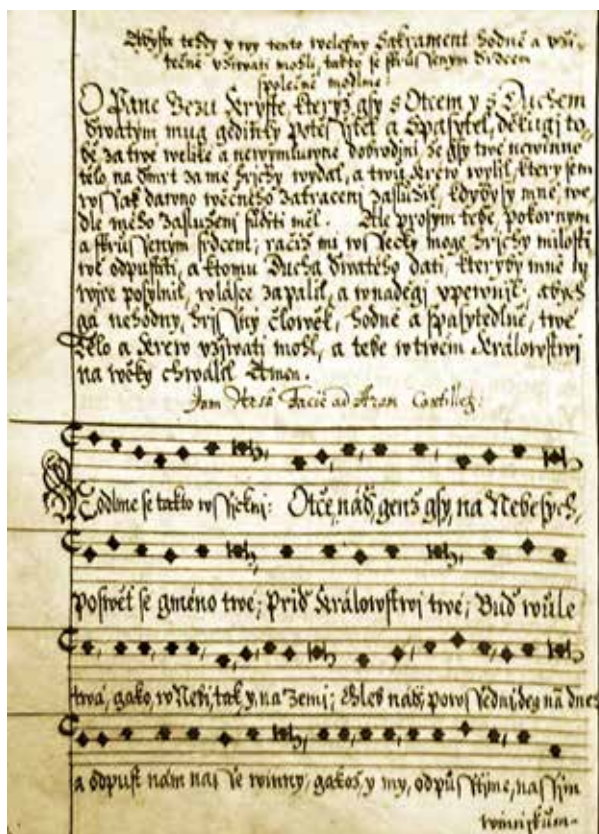 Abyste tehdy y wy tento welebny Sakrament hodně a vži-
tečně vžiwati mohli, takto se skraussenym srdcem
společně modlme:
O Pane Jezu Kryste, kterýž gsy s Otcem y s Duchem
Swatým mug gediný potěssytel a Spasytel, děkugi to-
bě za twé weliké a newymluwné dobrodiní, že gsy twé newinné
tělo na smrt za mé hřichy wydal, a twů Krew wylil, který sem
wssak dáwno wěčného zatracení zaslúžil, kdybysy mne, we-
dle mého zaslužení súditi měl. Ale prosym tebe, pokorným
a skrussenym srdcem, račiž mi wssecky moge hřichy milosti-
wě odpustiti, a ktomu Ducha Swatého dati, kterýby mne w
wjře posylnil, wlásce zapálil, a wnaděgi vperwnil, abych
gá nehodny, hrjssný člowěk, hodně a spasytedlně, twé
Tělo a Krew vžiwati mohl, a tebe wtwém Králowstwi
na wěky chwálil Amen.
Modlme se takto wssickni: Otče náš, genž gsy na Nebesych,
poswět se gméno twé; Přiď Králowstwj twé; Buď wůle
twá, gako, w Nebi, tak y na Zemi; Chleb náš, powssedni deg nám dnes
a odpust nám nasse winny, gakož y my, odpausstjme, nassim
winnjkům.